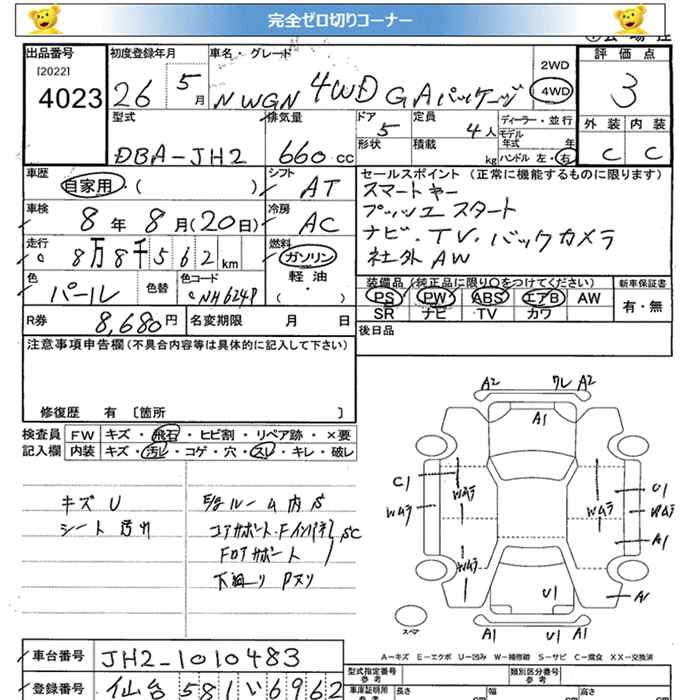 完全ゼロ切りコーナー
出品番号 初度登録年月 車名・グレード 2WD 評価点
[2022]
4023 26 5月 N WGN 4WD G Aパッケージ 4WD 3
型式 排気量 ドア 定員 ディーラー・並行 外装 内装
DBA-JH2 660cc 5 4人 モデル年式 年 C C
形状 積載 kg ハンドル 左・右
車歴 自家用・( ) シフト AT セールスポイント (正常に機能するものに限ります)
スマートキー
車検 8年 8月(20日) 冷房 AC プッシュスタート
ナビ・TV・バックカメラ
走行 8万8千562km 燃料 ガソリン 社外AW
軽油・( )
色 パール 色替 色コード NH624P 装備品(純正品に限り○をつけてください) 新車保証書
PS PW ABS エアB AW 有・無
SR ナビ TV カワ
R券 8,680円 名変期限 月 日 後日品
注意事項申告欄(不具合内容等は具体的に記入して下さい)
修復歴 有 〔箇所 〕
検査員 FW キズ・飛石・ヒビ割・リペア跡・×要
記入欄 内装 キズ・汚レ・コゲ・穴・スレ・キレ・破レ
キズ U
シート 汚れ
E/gルーム内 S
コアサポート・Fインパネ SC
Fロアサポート
下廻り Pヌリ
A2 ワレ A2
A1
C1
Wムラ Wムラ Wムラ U1
Wムラ
A1
Wムラ Wムラ
U1
A1 U1 A1
スペア
A-キズ E-エクボ U-凹み W-補修跡 S-サビ C-腐食 XX-交換済
車台番号 JH2-1010483
型式指定番号 参考 類別区分番号 参考
登録番号 仙台 581 い 6962
車庫証明用 参考 長さ cm 幅 cm 高さ cm